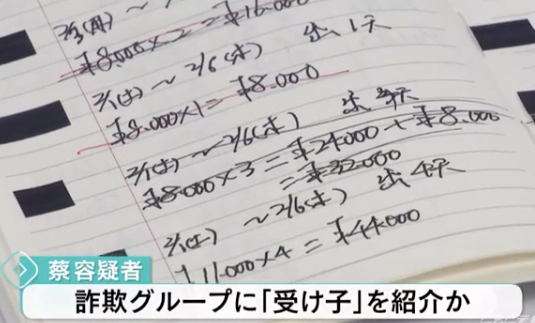 2/3(月) ~
$8.000×2 = $16.000
2/1(土) ~ 2/6(木) 出1天
$8.000×1 = $8.000
2/1(土) ~ 2/6(木) 出3天
$8.000×3 = $24000 + $8.000
= $32000
2/1(土) ~ 2/6(木) 出4天
$11.000×4 = $44000
蔡容疑者
詐欺グループに「受け子」を紹介か